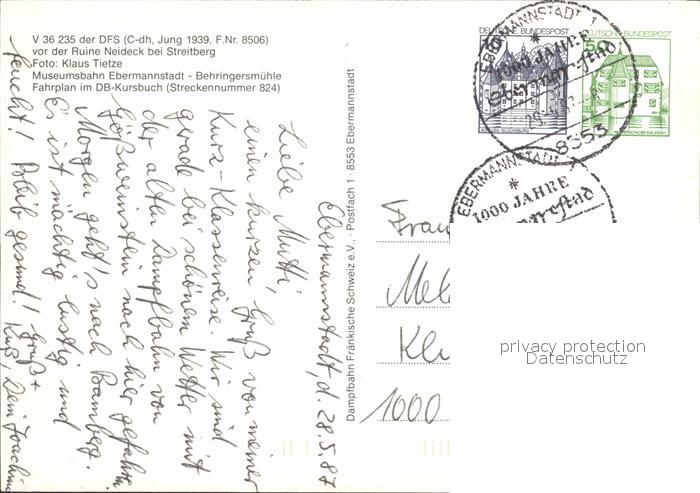 V 36 235 der DFS (C-dh, Jung 1939, F.Nr. 8506)
vor der Ruine Neideck bei Streitberg
Foto: Klaus Tietze
Museumsbahn Ebermannstadt - Behringersmühle
Fahrplan im DB-Kursbuch (Streckennummer 824)
Ebermannstadt, d. 28.5.87
Liebe Mutti,
einen kurzen Gruß von meiner
Kurz-Klassenreise. Wir sind
gerade bei schönen Wetter mit
der alten Dampfbahn von
Gößweinstein nach hier gefahren
Morgen geht's nach Bamberg.
Es ist mächtig lustig und
feucht! Bleib gesund! Gruß +
Kuß, Dein Joachim
Dampfbahn Fränkische Schweiz e.V., · Postfach 1 · 8553 Ebermannstadt
EBERMANNSTADT 1
1000 JAHRE
8553
DEUTSCHE BUNDESPOST
50
EBERMANNSTADT 1
1000 JAHRE
Frau
Mel
Kl
1000
privacy protection
Datenschutz